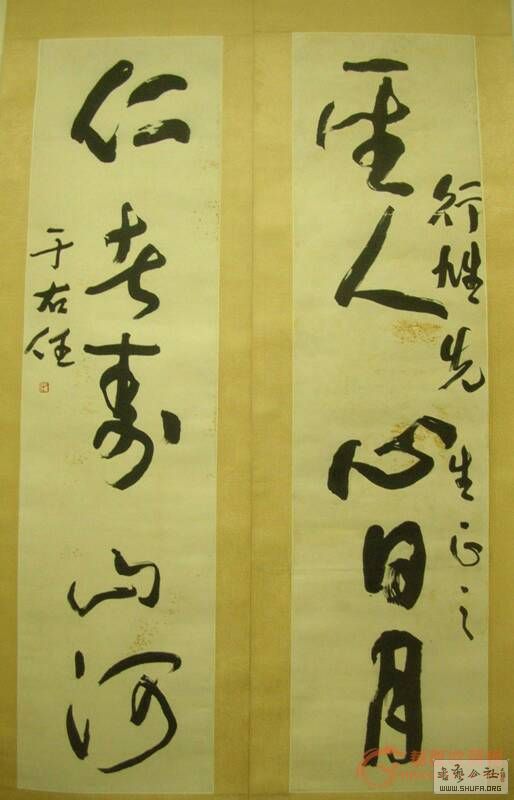 圣人心日月
行雄先生正之
仁者寿山河
于右任
书法公社
WWW.SHUFA.ORG